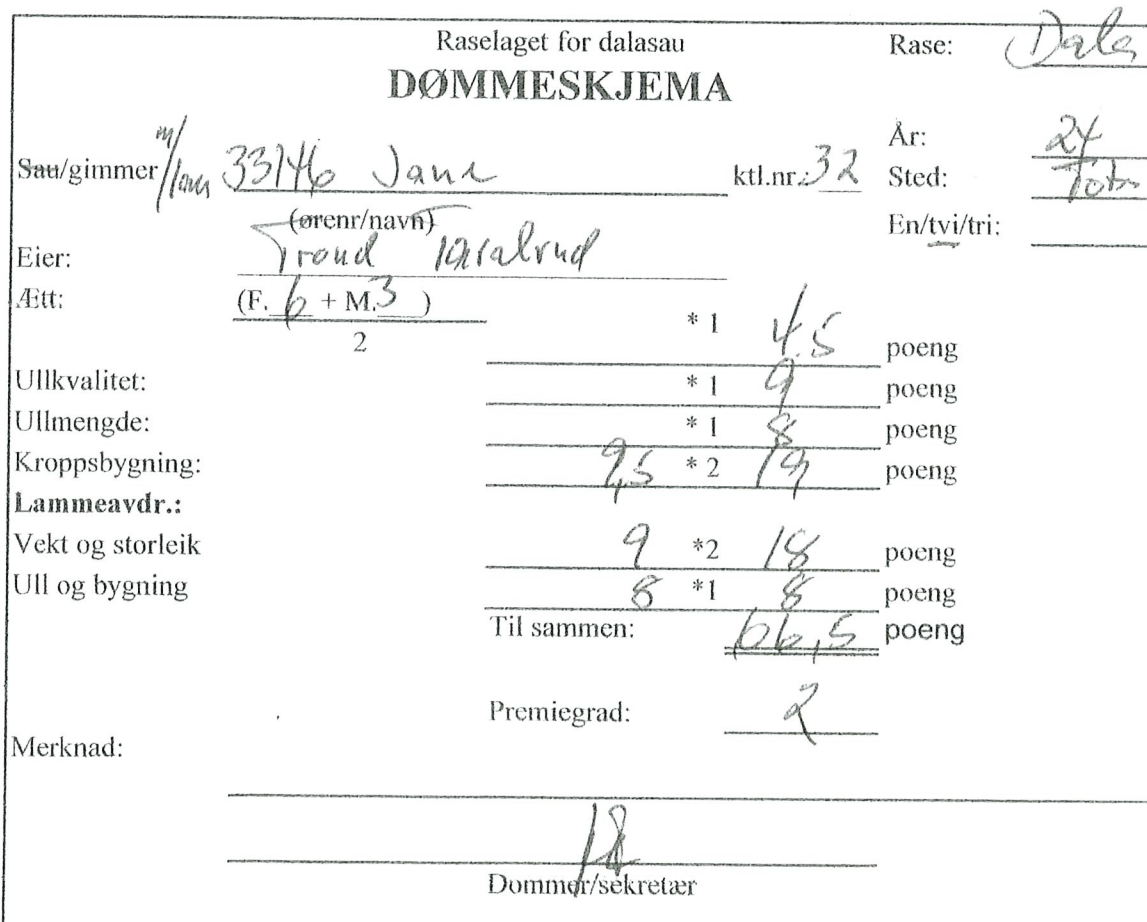 Raselaget for dalasau
Rase: Dala
DØMMESKJEMA
År: 24
Sau/gimmer m/lam 33746 Jane ktl.nr.: 32 Sted:
(ørenr/navn) En/tvi/tri:
Eier: Trond
Ætt: (F. 6 + M. 3 )
2
* 1 4.5 poeng
Ullkvalitet: * 1 9 poeng
Ullmengde: * 1 8 poeng
Kroppsbygning: 9,5 * 2 19 poeng
Lammeavdr.:
Vekt og storleik 9 *2 18 poeng
Ull og bygning 8 *1 8 poeng
Til sammen: 66,5 poeng
Premiegrad: 2
Merknad:
Dommer/sekretær